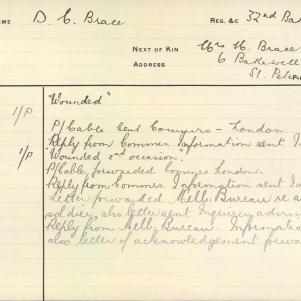 AME D. C. Brace REG. &c 32nd Ba
NEXT OF KIN Mrs M. Brace
ADDRESS 6 Bakewell
St. Peter
1/P. "Wounded"
P/Cable sent Comyers - London.
Reply from Commrs. Information sent I
1/P "Wounded 2nd occasion."
P/Cable forwarded Comyers London.
Reply from Commrs. Information sent I
Letter forwarded Melb. Bureau re a
soldier, also letter sent Inquirer
Reply from Melb. Bureau. Informat
also letter of acknowledgement forwa